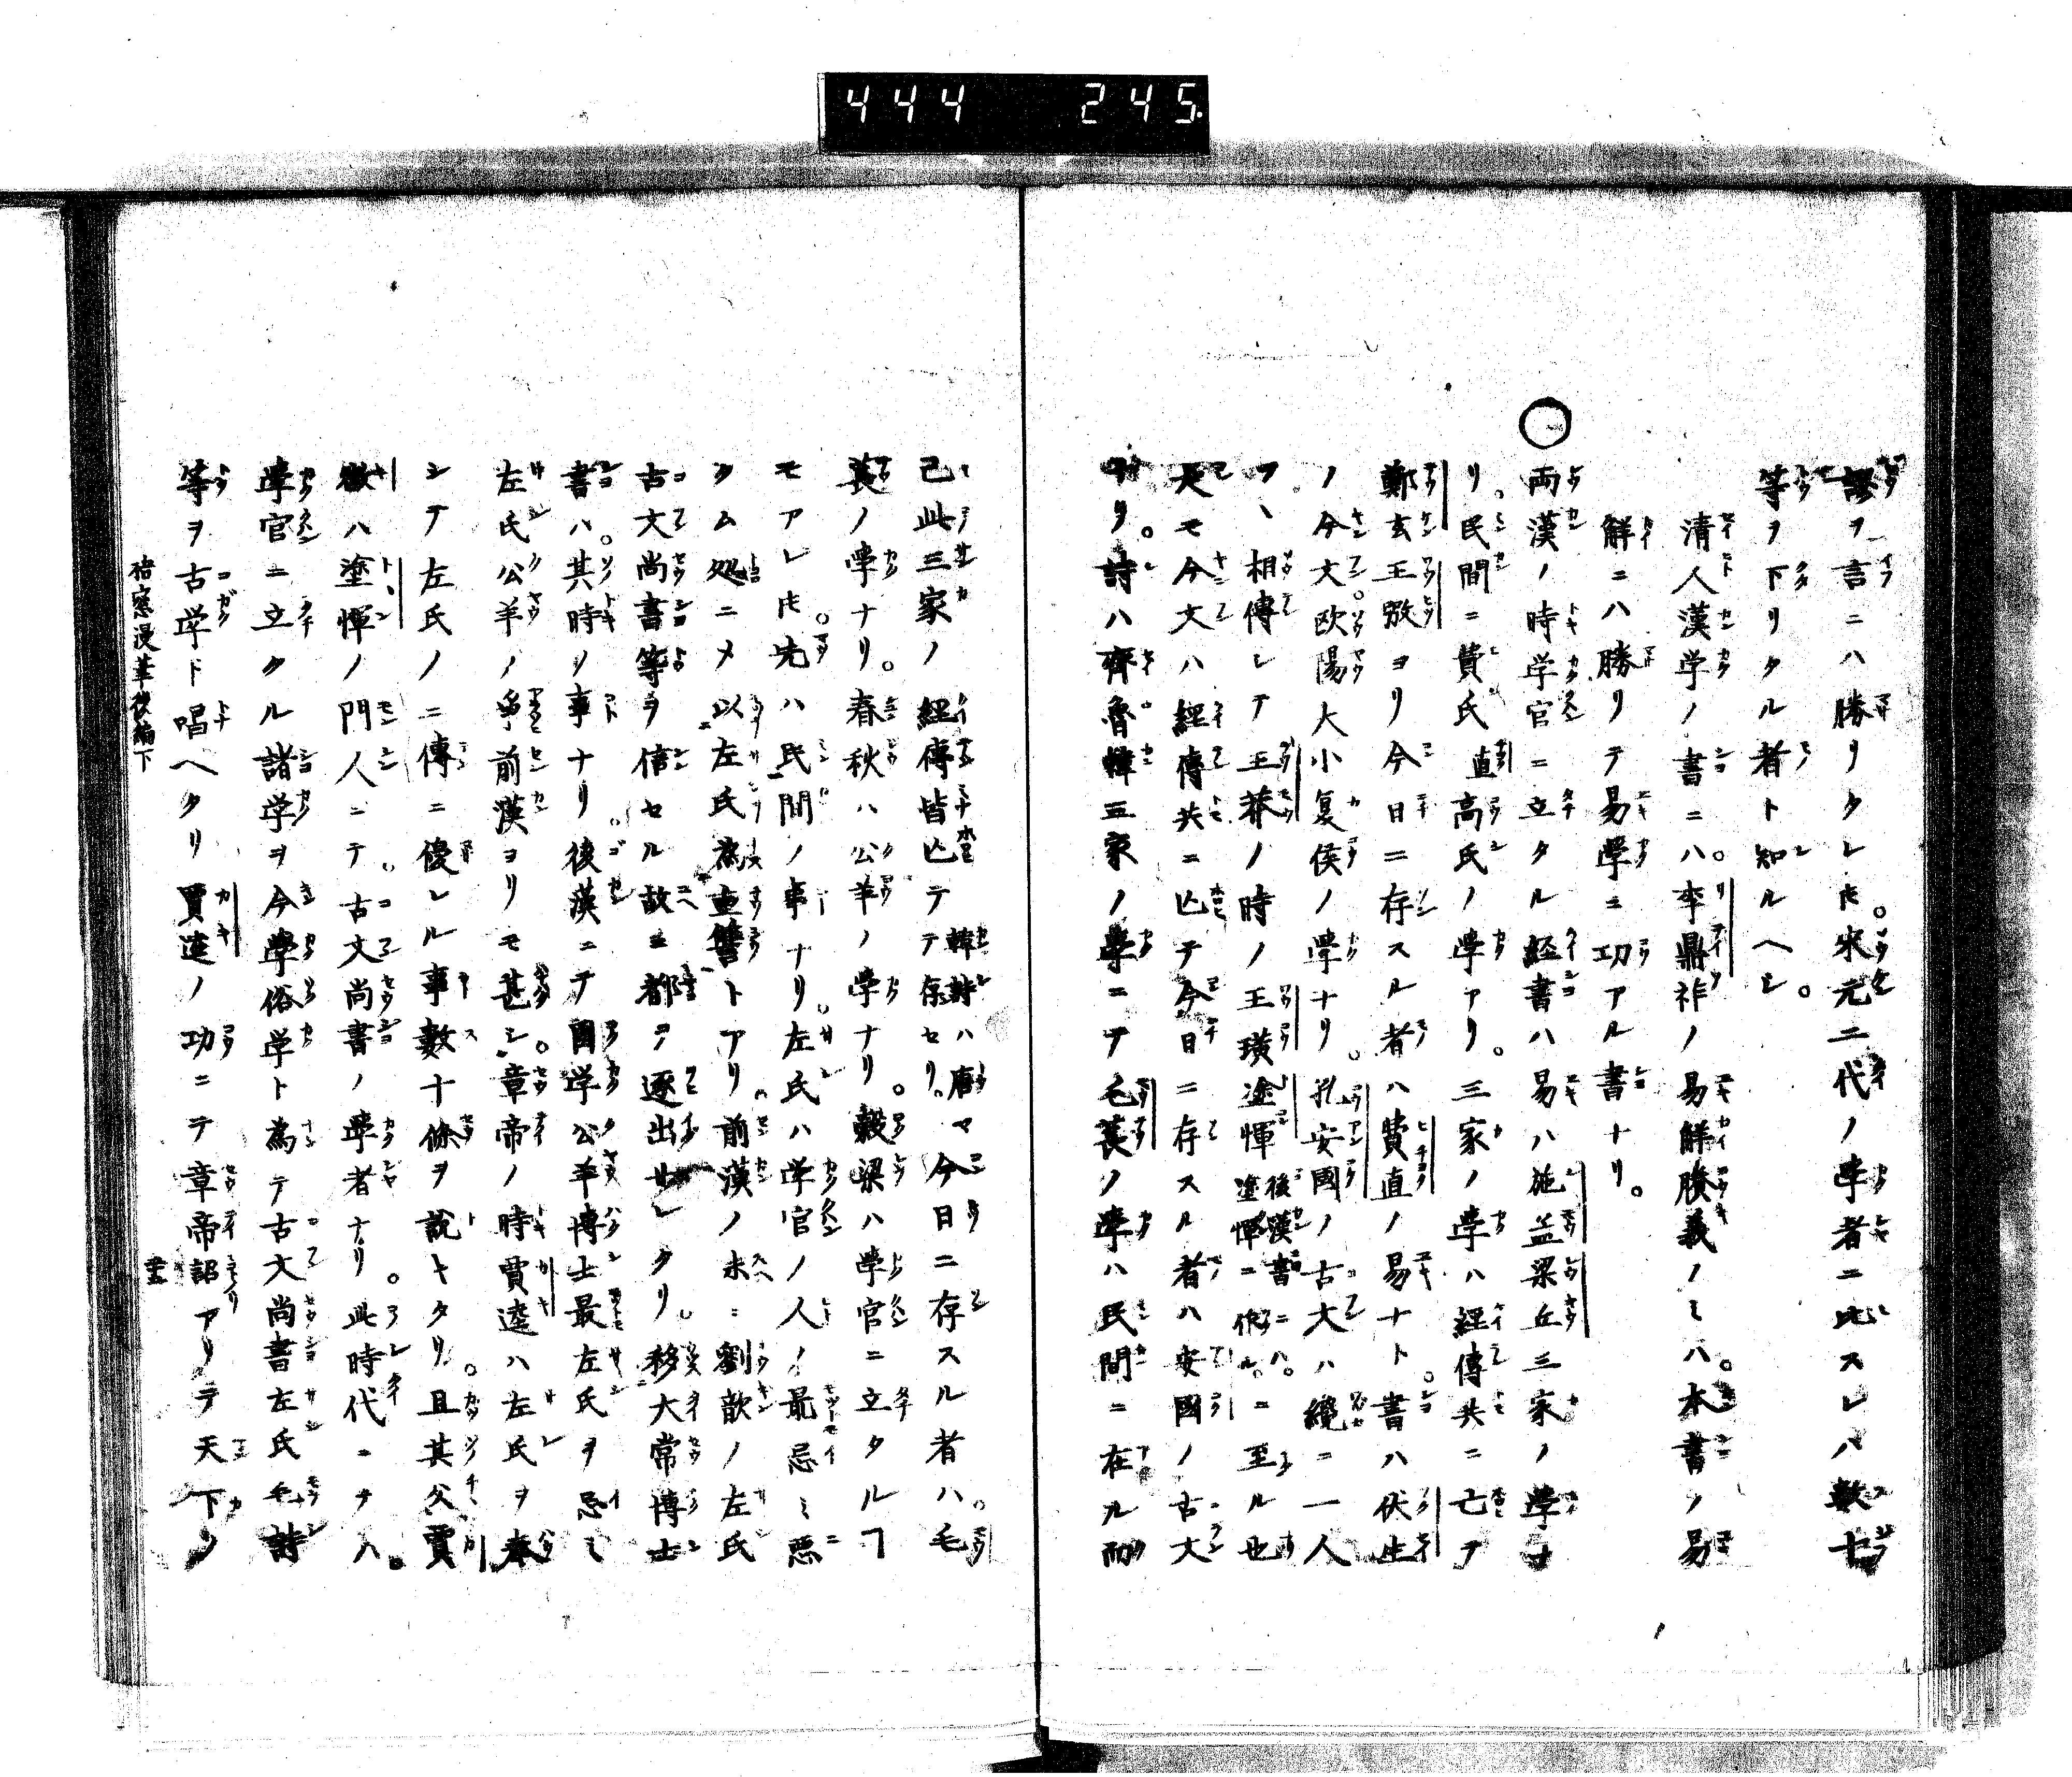 444 245
謬ヲ言ニハ勝リタレ𪜈。宋元二代ノ学者ニ比スレハ数十
等ヲ下リタル者ト知ルヘシ。
清人漢学ノ書ニハ。李鼎祚ノ易解賸義ノミハ。本書ノ易
解ニハ勝リテ易学ニ功アル書ナリ。
○両漢ノ時学官ニ立タル経書ハ易ハ施孟梁丘三家ノ学ナ
リ。民間ニ費氏直高氏ノ学アリ。三家ノ学ハ経傳共ニ亡ア
鄭玄王弼ヨリ今日ニ存スル者ハ費直ノ易ナト。書ハ伏生
ノ今文。欧陽大小夏侯ノ学ナリ。孔安國ノ古文ハ纔ニ一人
ツヽ相傳シテ王莽ノ時ノ王璜塗惲後漢書ニハ。塗惲ニ作ル。ニ至ル也
是モ今文ハ経傳共ニ亡テ今日ニ存スル者ハ安國ノ古文
ナリ。詩ハ齊魯韓三家ノ学ニテ毛萇ノ学ハ民間ニ在ル而
己此三家ノ経傳皆亡テ韓詩ハ唐マテ存セリ。今日ニ存スル者ハ。毛
萇ノ学ナリ。春秋ハ公羊ノ学ナリ。穀梁ハ学官ニ立タルヿ
モアレ𪜈。先ハ民間ノ事ナリ。左氏ハ学官ノ人ノ最忌ミ惡
クム処ニ〆以左氏為重讐トアリ。前漢ノ末ニ劉歆ノ左氏
古文尚書等ヲ信セル故ニ都ヲ逐出サレタリ。移大常博士
書ハ。其時ノ事ナリ。後漢ニテ國学公羊博士最左氏ヲ忌ミ
左氏公羊ノ爭前漢ヨリモ甚シ。章帝ノ時賈逵ハ左氏ヲ奉
シテ左氏ノ二傳ニ優レル事數十條ヲ說キタリ。且其父賈
徽ハ塗惲ノ門人ニテ。古文尚書ノ學者ナリ。此時代ニナハ。
學官ニ立タル諸学ヲ今學俗学ト為テ古文尚書左氏毛詩
等ヲ古学ト唱ヘタリ賈逵ノ功ニテ章帝詔アリテ天下ノ
梧窓漫筆後編下